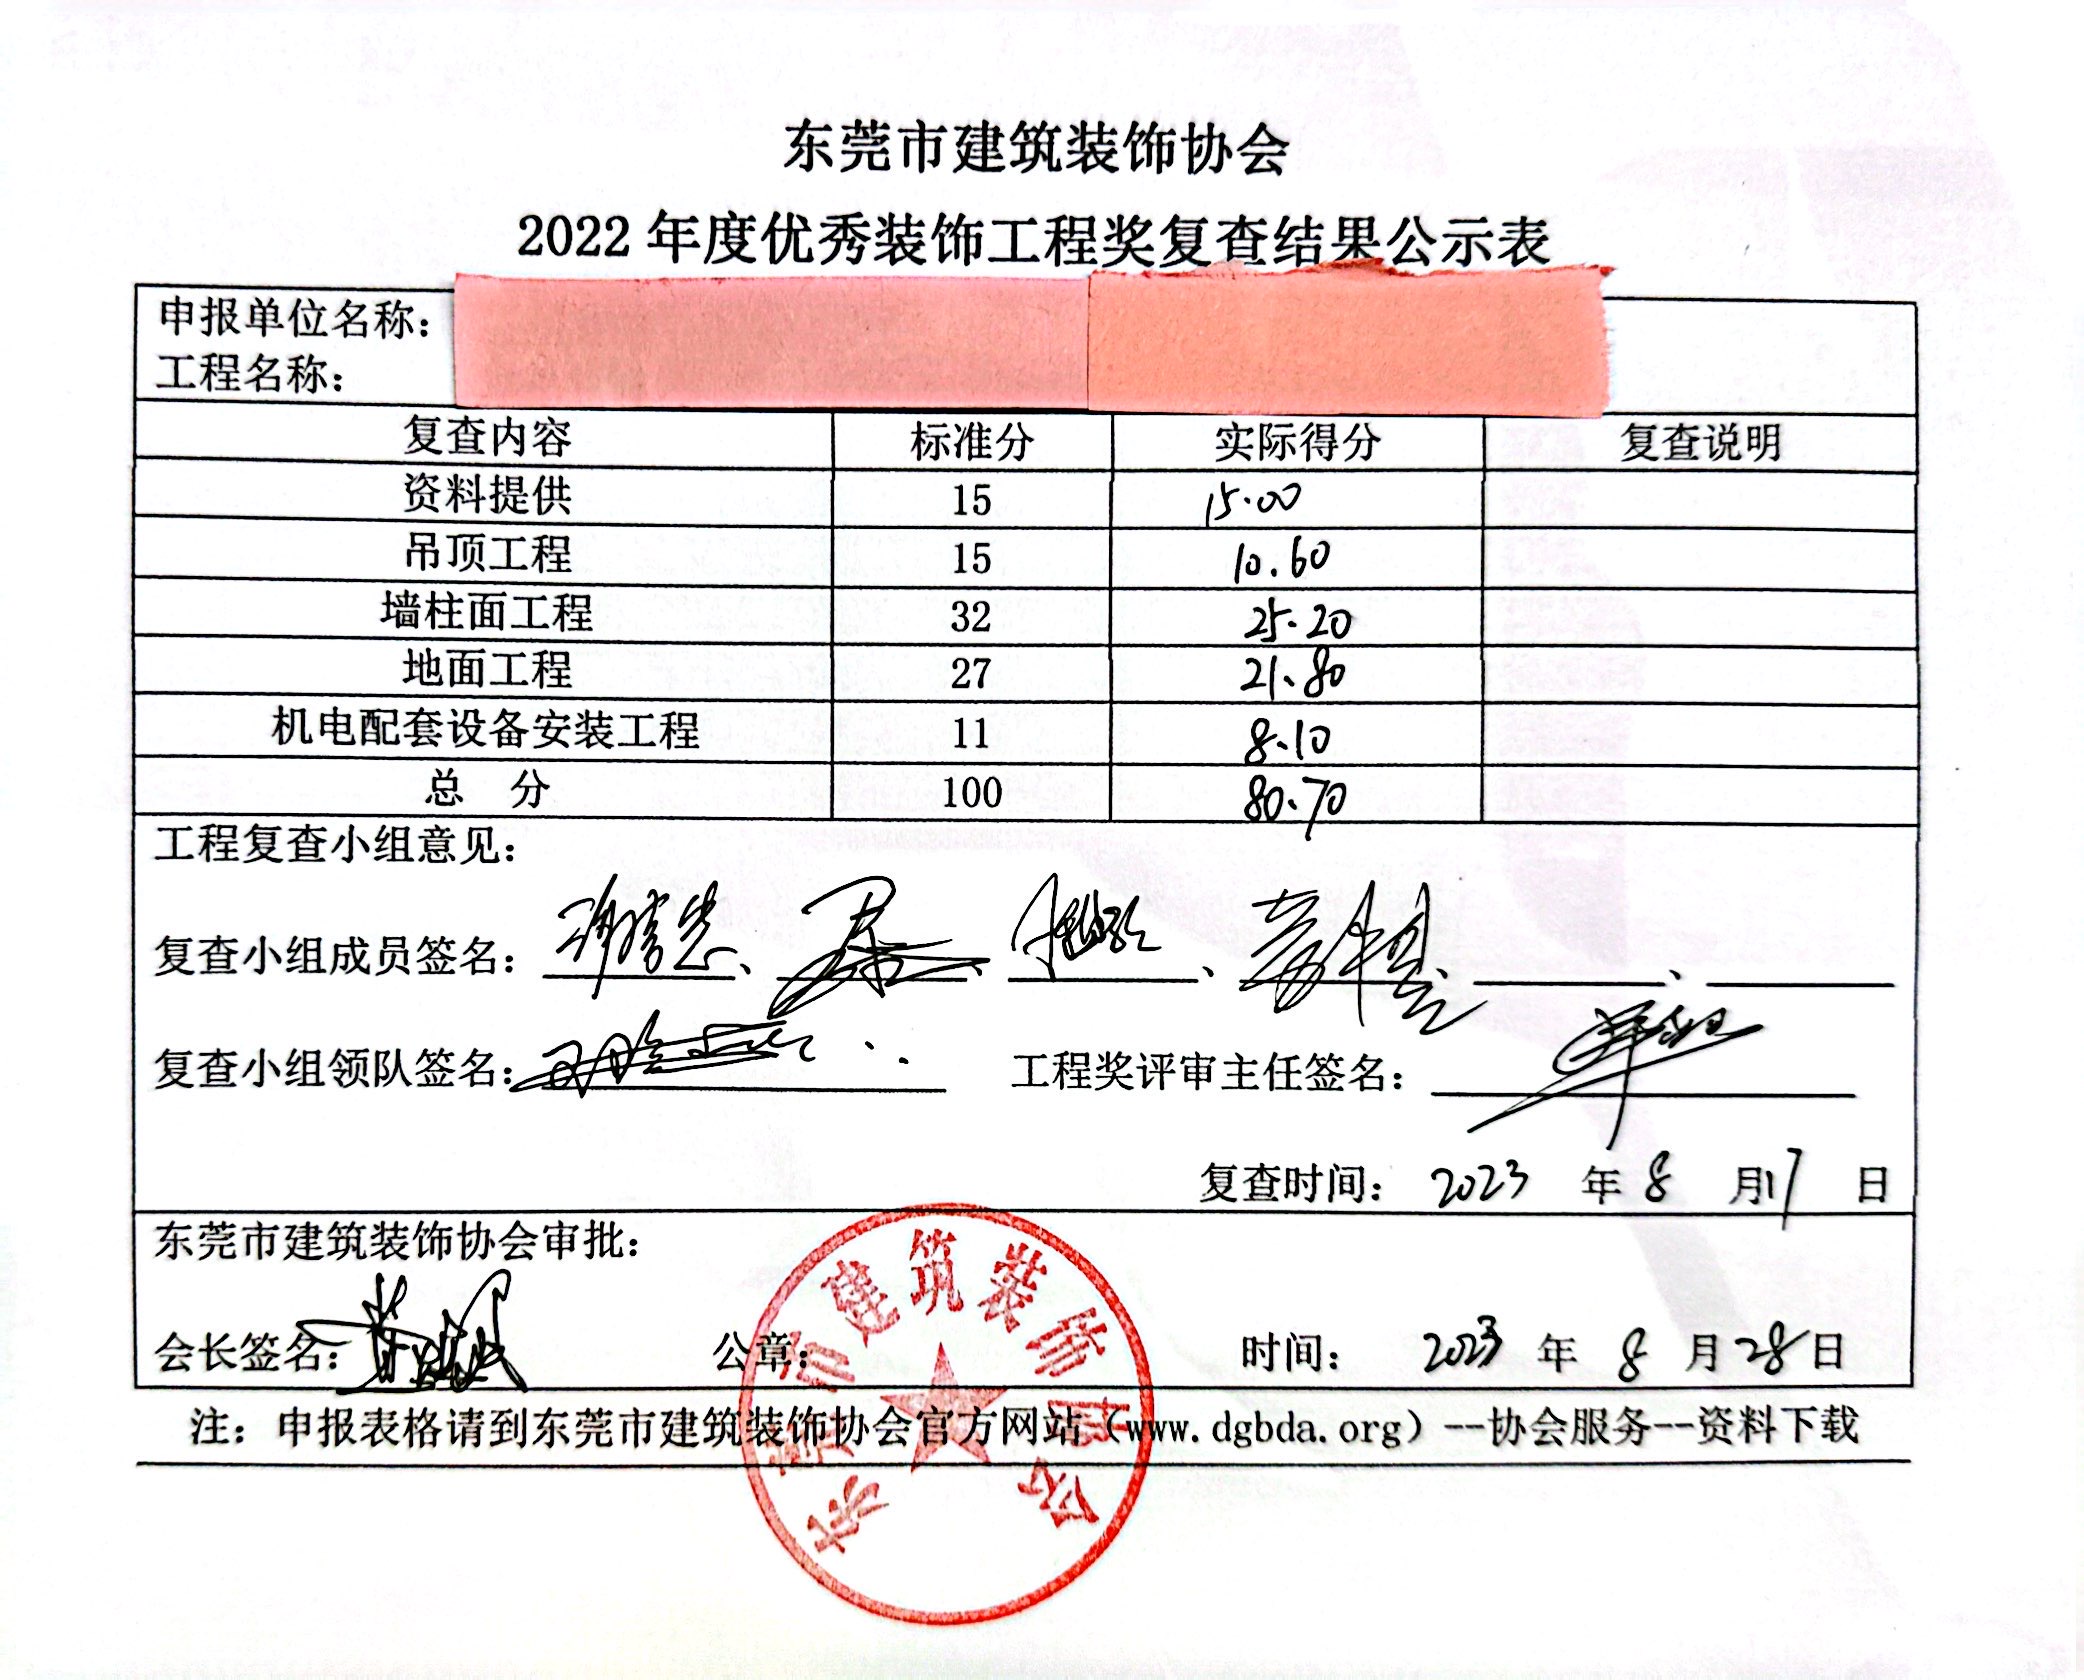 东莞市建筑装饰协会
2022年度优秀装饰工程奖复查结果公示表
申报单位名称：
工程名称：
复查内容 标准分 实际得分 复查说明
资料提供 15 15.00
吊顶工程 15 10.60
墙柱面工程 32 25.20
地面工程 27 21.80
机电配套设备安装工程 11 8.10
总 分 100 80.70
工程复查小组意见：
复查小组成员签名： 、 、 、 、 、
复查小组领队签名： 工程奖评审主任签名：
复查时间： 2023 年 8 月 17 日
东莞市建筑装饰协会审批：
会长签名： 公章： 时间： 2023 年 8 月 28 日
注：申报表格请到东莞市建筑装饰协会官方网站（www.dgbda.org）--协会服务--资料下载
东莞市建筑装饰协会